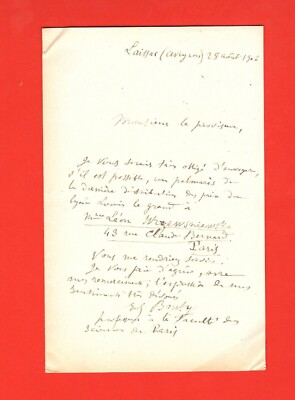 Laissac (Aveyron) 28 août 190
Monsieur le proviseur,
Je vous serais très obligé d'envoyer,
s'il est possible, un palmarès de
la dernière distribution des prix du
lycée Louis le grand à
Mme Léon
43 rue Claude Bernard
Paris
Vous me rendriez service.
Je vous prie d'agréer, avec
mes remerciements, l'expression de mes
sentiments très dévoués
professeur à la Faculté des
Sciences de Paris